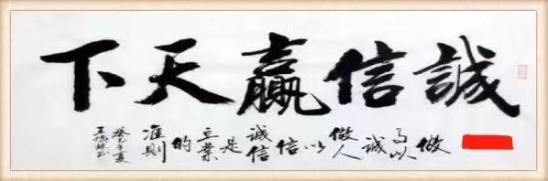 誠信贏天下
做事以誠做人以信誠信是立業的准則
癸巳年夏